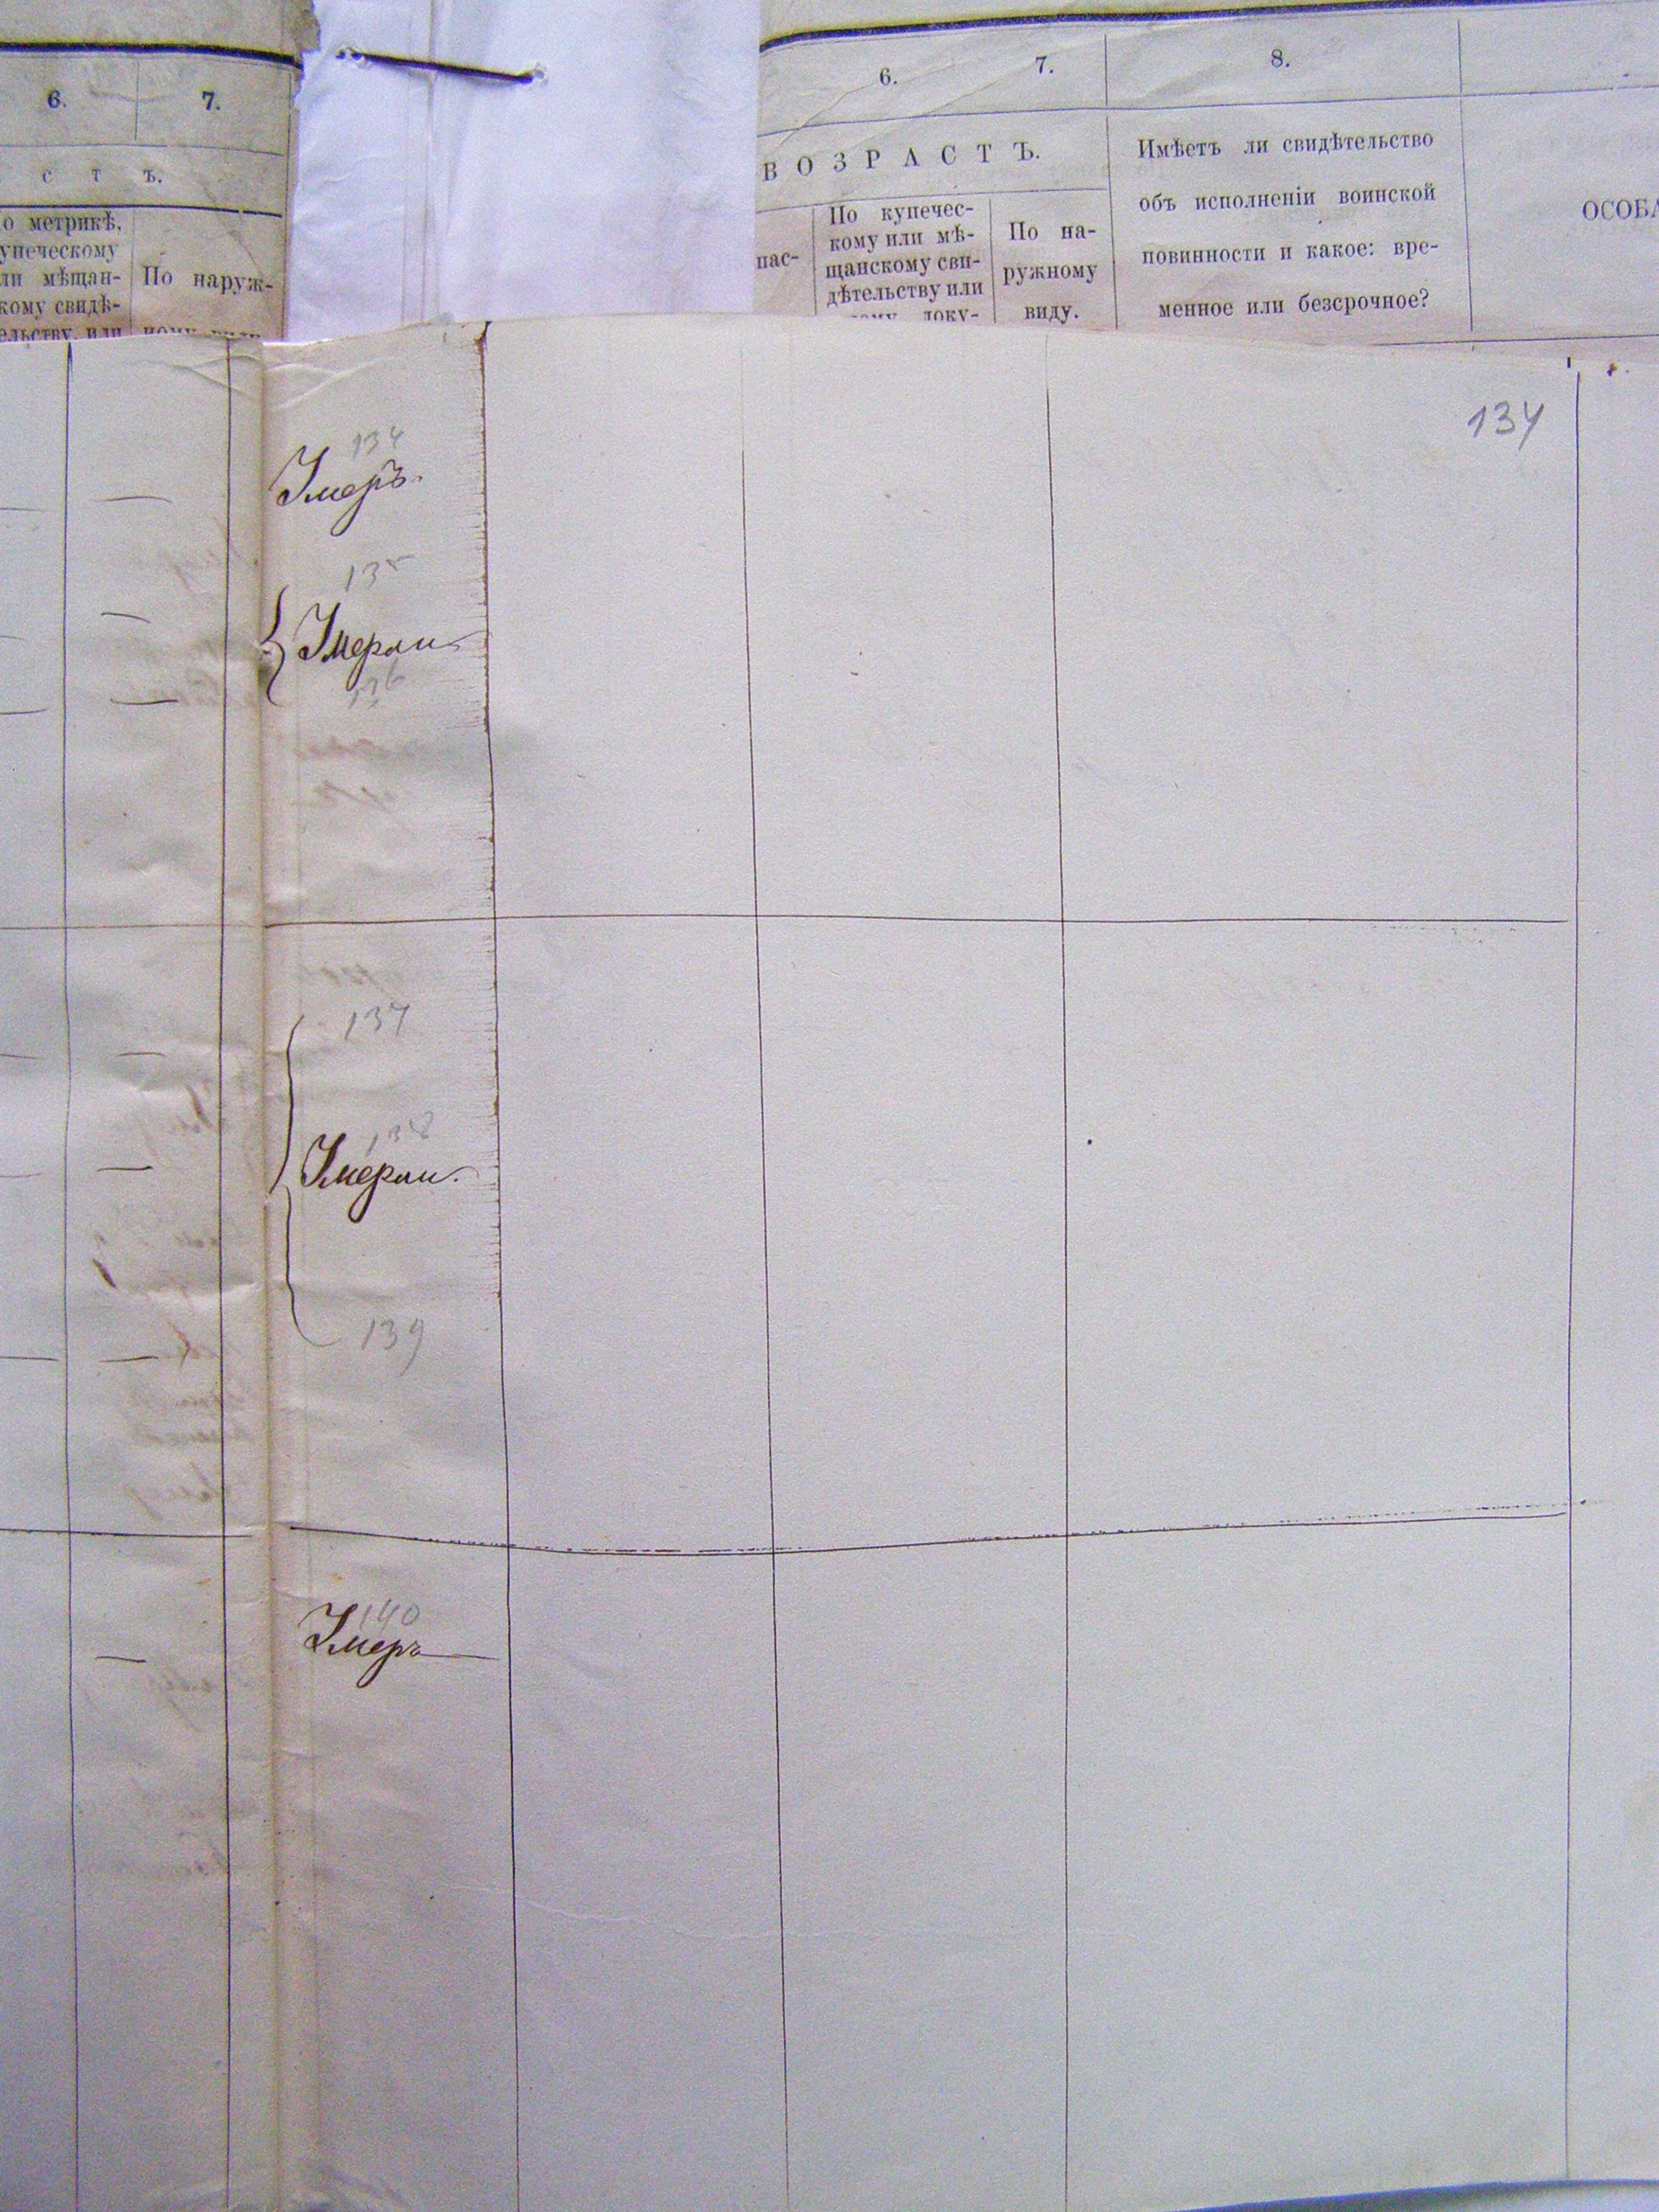 6. 7.
с т ъ.
о метрикѣ,
упеческому
ли мѣщан-
кому свидѣ-
ельству, или
По наруж-
6. 7. 8.
ВОЗРАСТЪ.
пас-
По купечес-
кому или мѣ-
щанскому сви-
дѣтельству или
доку-
По на-
ружному
виду.
Имѣетъ ли свидѣтельство
объ исполненіи воинской
повинности и какое: вре-
менное или безсрочное?
ОСОБА
134
134
Умеръ.
135
Умерли
136
137
138
Умерли.
139
140
Умеръ